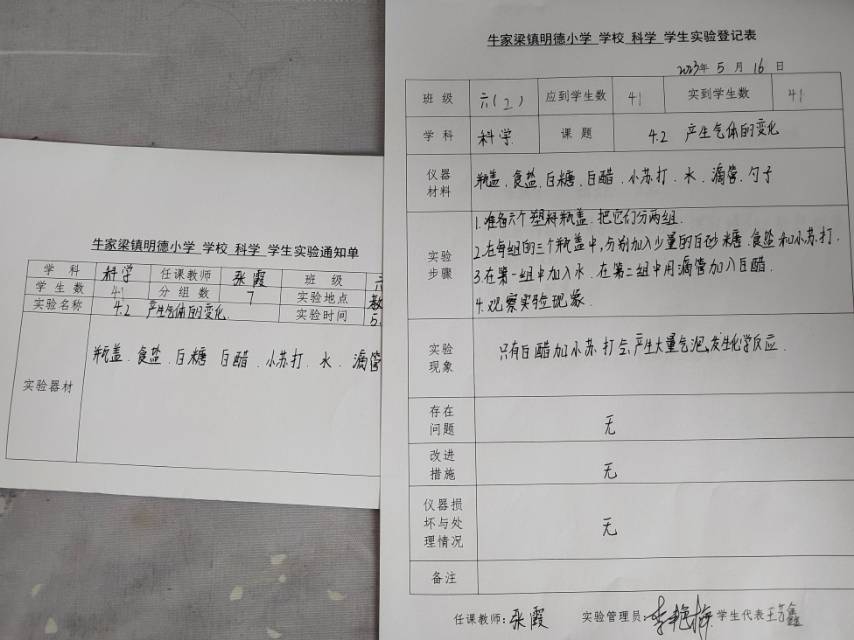 牛家梁镇明德小学 学校 科学 学生实验通知单
学科 科学 任课教师 张霞 班级 六
学生数 41 分组数 7 实验地点
实验名称 4.2 产生气体的变化 实验时间 5.
实验器材 瓶盖、食盐、白糖 白醋、小苏打、水、滴管
牛家梁镇明德小学 学校 科学 学生实验登记表
2023年 5 月 16 日
班级 六(2) 应到学生数 41 实到学生数 41
学科 科学 课题 4.2 产生气体的变化
仪器材料 瓶盖、食盐、白糖、白醋、小苏打、水、滴管、勺子
实验步骤
1.准备六个塑料瓶盖.把它们分两组.
2.在每组的三个瓶盖中,分别加入少量的白砂糖、食盐和小苏打.
3.在第一组中加入水.在第二组中用滴管加入白醋.
4.观察实验现象.
实验现象 只有白醋加小苏打会产生大量气泡,发生化学反应.
存在问题 无
改进措施 无
仪器损坏与处理情况 无
备注
任课教师:张霞 实验管理员:李艳梅 学生代表